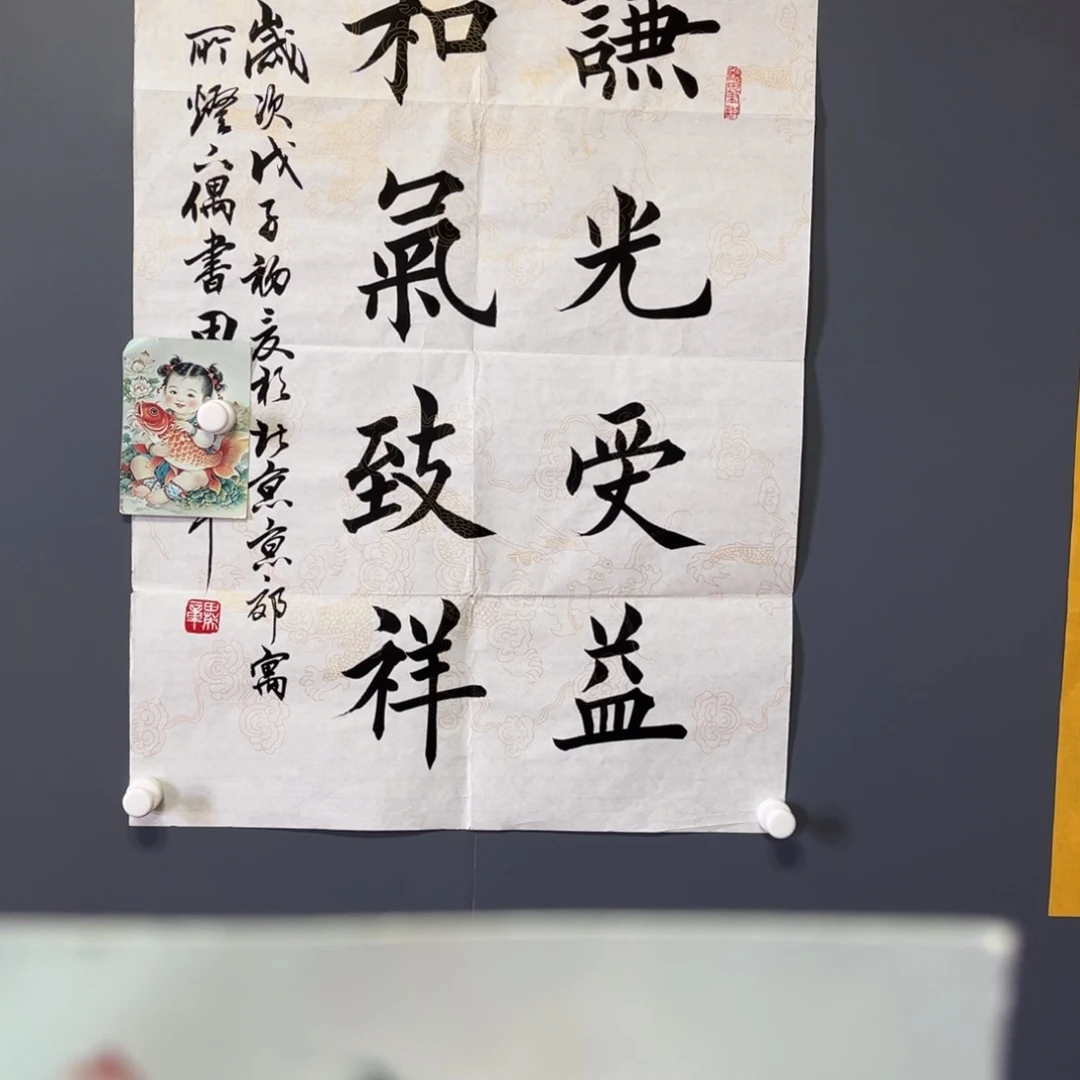 謙光受益
和氣致祥
歲次戊子初夏於北京京郊寓
所燈下偶書田